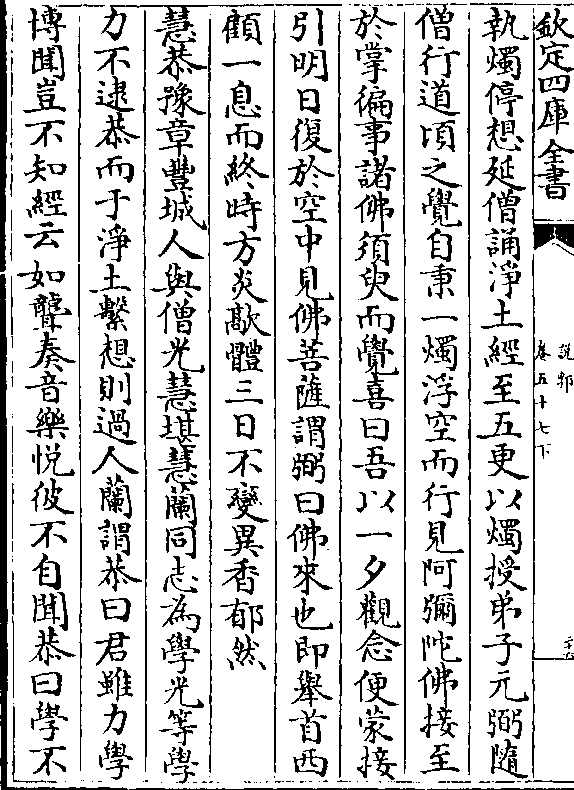 欽定四庫全書
說郛
卷五十七下
執燭停想延僧誦淨土經至五更以燭授弟子元弼隨
僧行道頃之覺自秉一燭浮空而行見阿彌陀佛接至
於掌徧事諸佛須臾而覺喜曰吾以一夕觀念便蒙接
引明日復於空中見佛菩薩謂弼曰佛來也即舉首西
顧一息而終時方炎歊體三日不變異香郁然
慧恭豫章豐城人與僧光慧堪慧蘭同志為學光等學
力不逮恭而于淨土繫想則過人蘭謂恭曰君雖力學
博聞豈不知經云如聾奏音樂悅彼不自聞恭曰學不